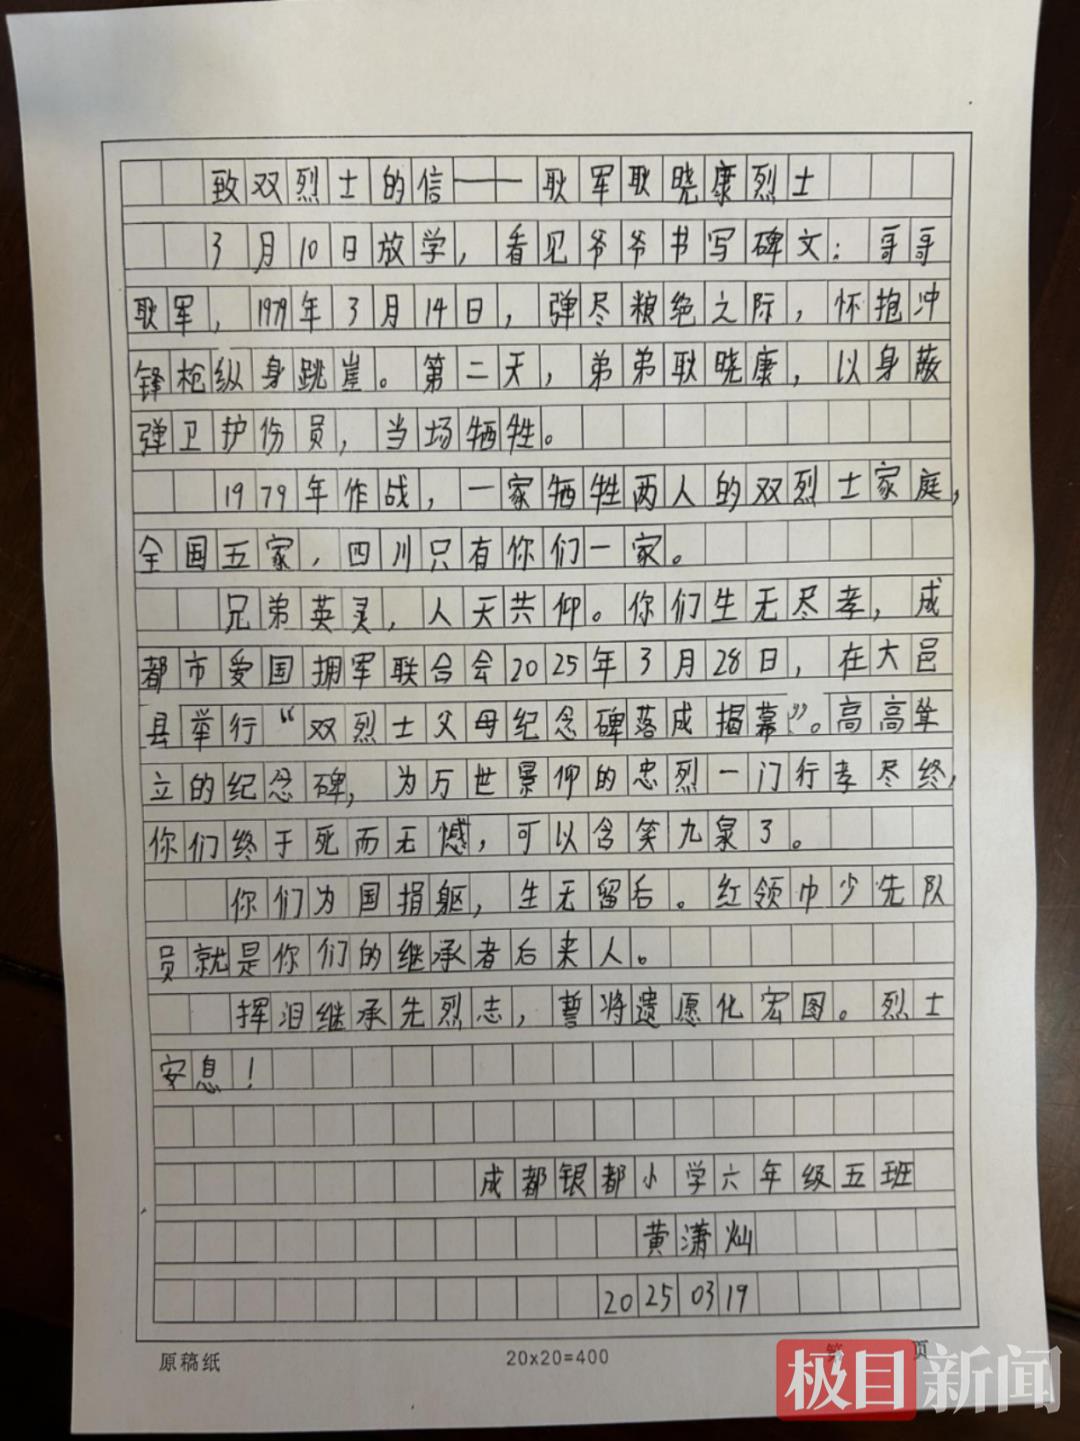 致双烈士的信——耿军耿晓康烈士
3月10日放学，看见爷爷书写碑文：哥哥
耿军，1979年3月14日，弹尽粮绝之际，怀抱冲
锋枪纵身跳崖。第二天，弟弟耿晓康，以身蔽
弹卫护伤员，当场牺牲。
1979年作战，一家牺牲两人的双烈士家庭，
全国五家，四川只有你们一家。
兄弟英灵，人天共仰。你们生无尽孝，成
都市爱国拥军联合会2025年3月28日，在大邑
县举行“双烈士父母纪念碑落成揭幕”。高高耸
立的纪念碑，为万世景仰的忠烈一门行孝尽终，
你们终于死而无憾，可以含笑九泉了。
你们为国捐躯，生无留后。红领巾少先队
员就是你们的继承者后来人。
挥泪继承先烈志，誓将遗愿化宏图。烈士
安息！
成都银都小学六年级五班
黄潇灿
2025 03 19
原稿纸 20x20=400 第 页
极目新闻